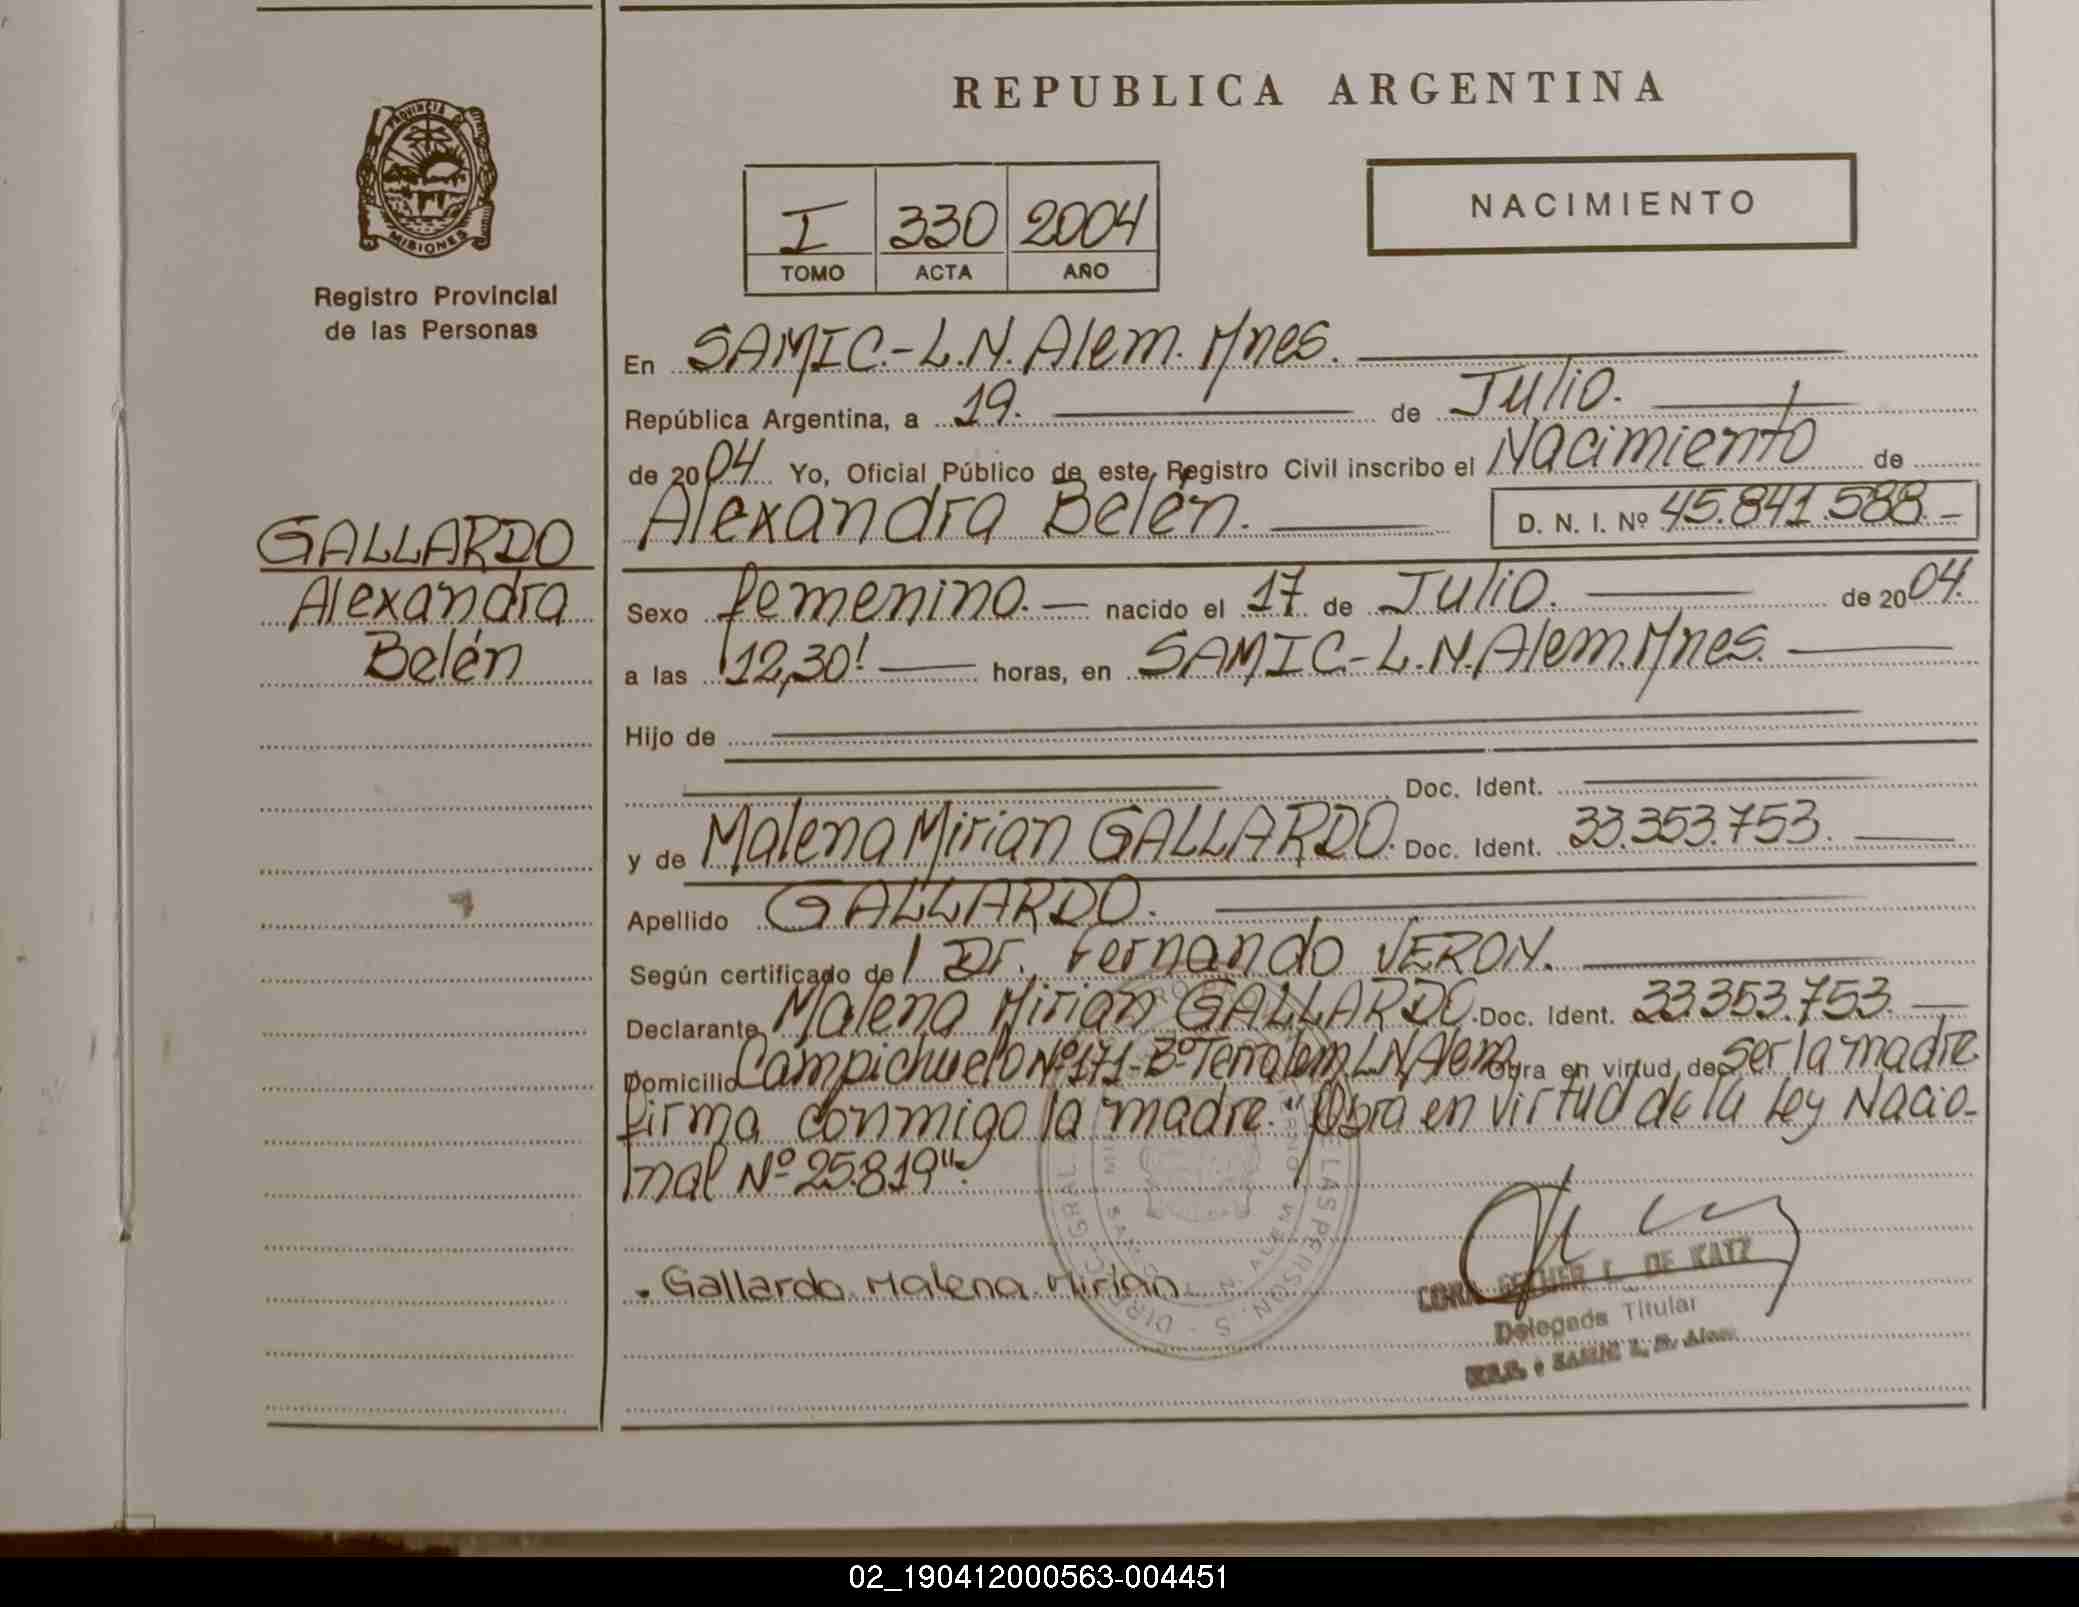 REPUBLICA ARGENTINA
PROVINCIA DE
MISIONES
Registro Provincial
de las Personas
GALLARDO
Alexandra
Belén
NACIMIENTO
I 330 2004
TOMO ACTA AÑO
En SAMIC.-L.N.Alem.Mnes.
República Argentina, a 19. de Julio.
de 2004 Yo, Oficial Público de este Registro Civil inscribo el Nacimiento de
Alexandra Belén. D. N. I. Nº 45.841.588.-
Sexo femenino.- nacido el 17 de Julio. de 2004.
a las 12,30' horas, en SAMIC.-L.N.Alem.Mnes.
Hijo de
Doc. Ident.
y de Malena Mirian GALLARDO. Doc. Ident. 33.353.753.
Apellido GALLARDO.
Según certificado del Dr. Fernando VERON.
Declarante Malena Mirian GALLARDO. Doc. Ident. 33.353.753.
Domicilio Campichuelo Nº171-Bº L.N.Alem Obra en virtud de Ser la madre
firma conmigo la madre. "Obra en virtud de la Ley Nacio-
nal Nº 25.819".
Gallardo Malena Mirian
L. DE KATZ
Delegada Titular
02_190412000563-004451